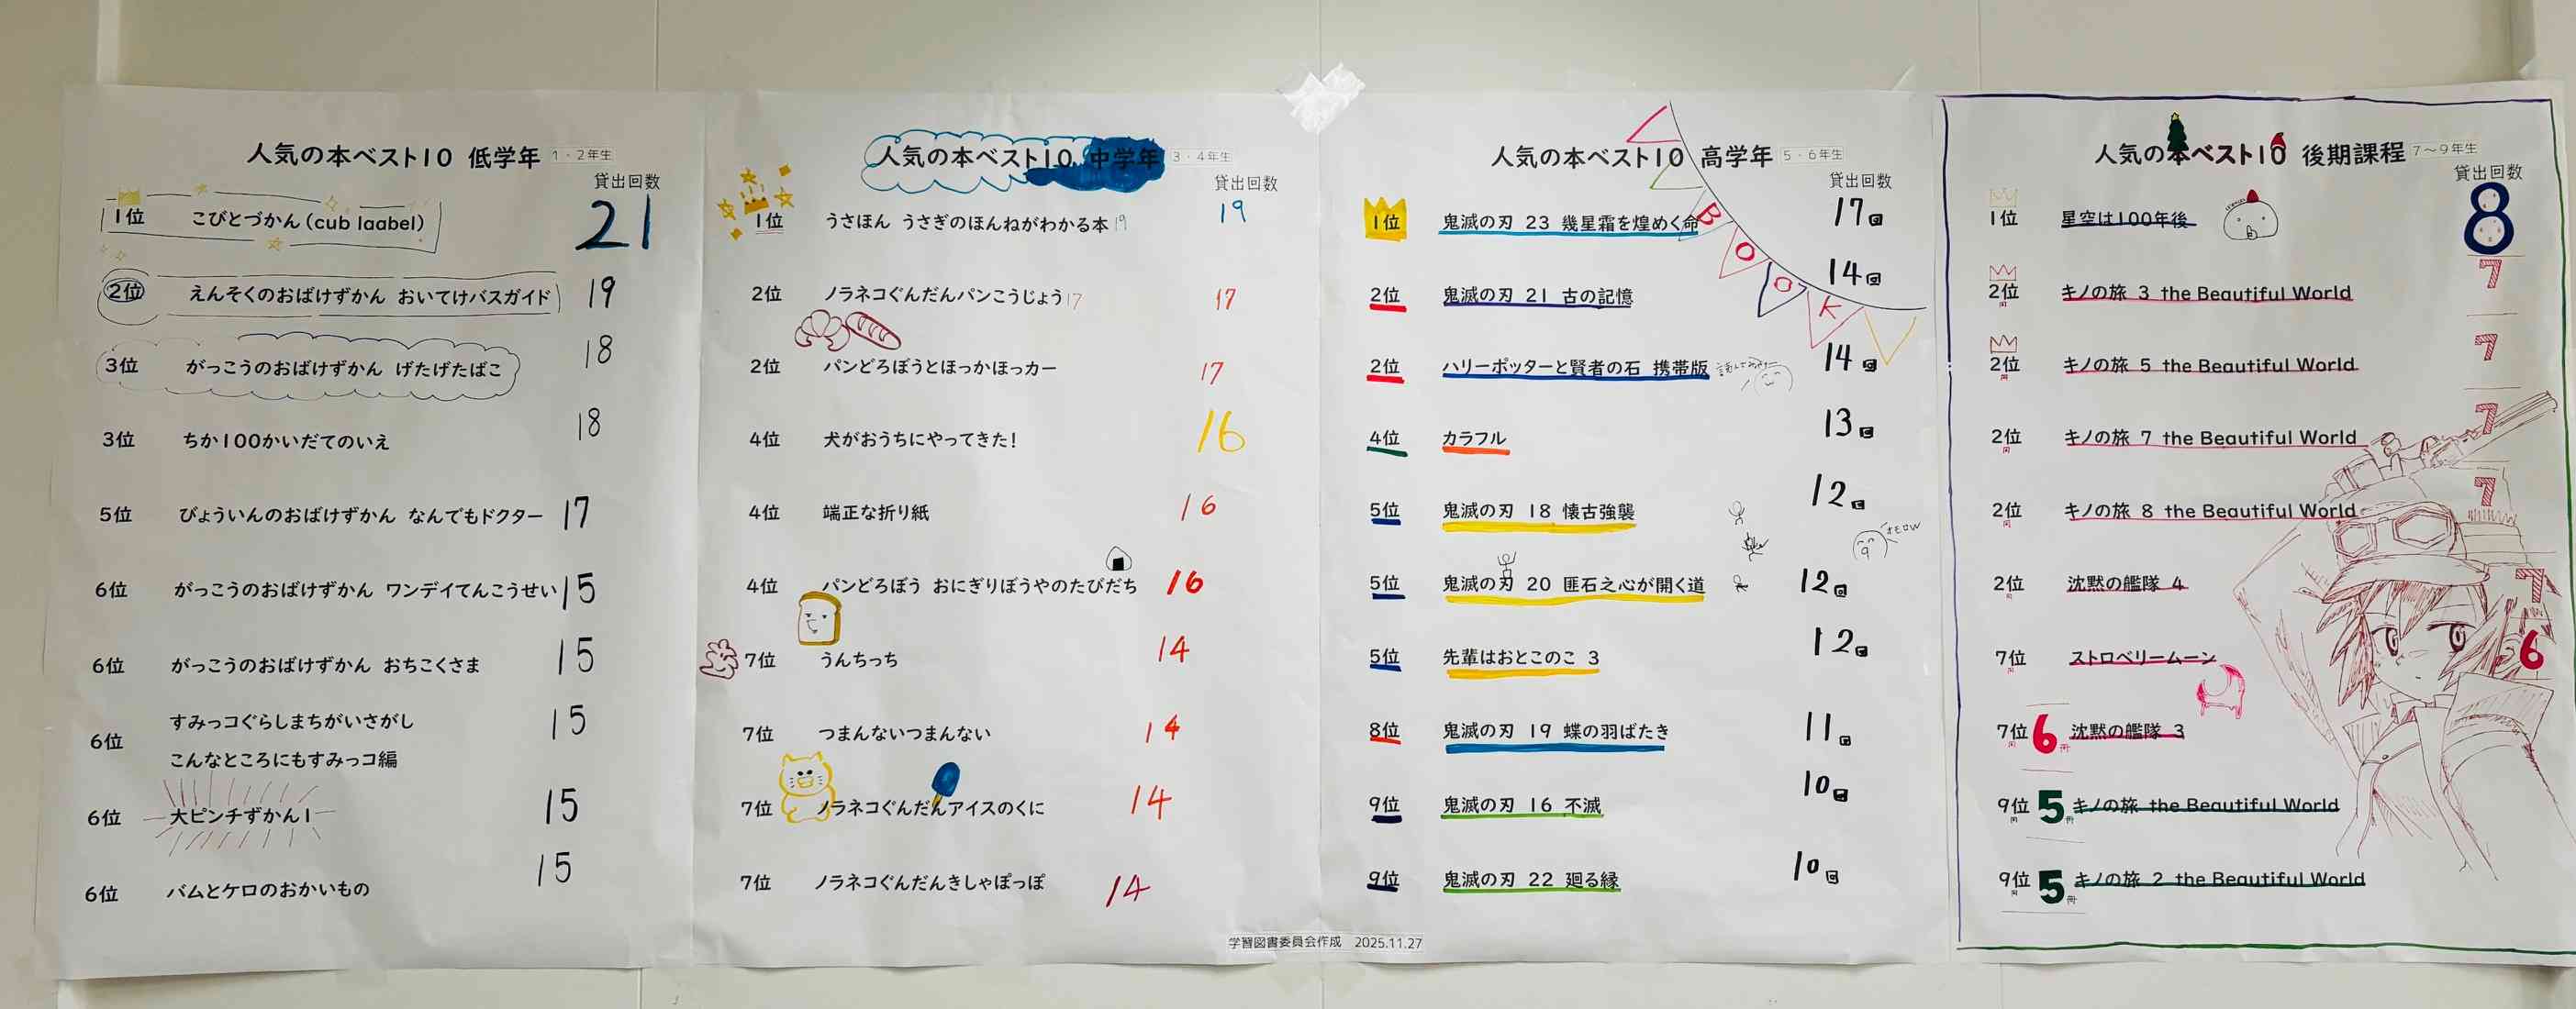 人気の本ベスト10 低学年 1・2年生
貸出回数
1位 こびとづかん(cub laabel) 21
2位 えんそくのおばけずかん おいてけバスガイド 19
3位 がっこうのおばけずかん げたげたばこ 18
3位 ちか100かいだてのいえ 18
5位 びょういんのおばけずかん なんでもドクター 17
6位 がっこうのおばけずかん ワンデイてんこうせい 15
6位 がっこうのおばけずかん おちこくさま 15
6位 すみっコぐらしまちがいさがし 15
こんなところにもすみっコ編
6位 大ピンチずかん1 15
6位 バムとケロのおかいもの 15
人気の本ベスト10 中学年 3・4年生
貸出回数
1位 うさほん うさぎのほんねがわかる本 19 19
2位 ノラネコぐんだんパンこうじょう 17 17
2位 パンどろぼうとほっかほっカー 17
4位 犬がおうちにやってきた! 16
4位 端正な折り紙 16
4位 パンどろぼう おにぎりぼうやのたびだち 16
7位 うんちっち 14
7位 つまんないつまんない 14
7位 ノラネコぐんだんアイスのくに 14
7位 ノラネコぐんだんきしゃぽっぽ 14
人気の本ベスト10 高学年 5・6年生
貸出回数
BOOK
1位 鬼滅の刃 23 幾星霜を煌めく命 17回
2位 鬼滅の刃 21 古の記憶 14回
2位 ハリーポッターと賢者の石 携帯版 14回
4位 カラフル 13回
5位 鬼滅の刃 18 懐古強襲 12回
MEOW
5位 鬼滅の刃 20 匪石之心が開く道 12回
5位 先輩はおとこのこ 3 12回
8位 鬼滅の刃 19 蝶の羽ばたき 11回
9位 鬼滅の刃 16 不滅 10回
9位 鬼滅の刃 22 廻る縁 10回
学習図書委員会作成 2025.11.27
人気の本ベスト10 後期課程 7〜9年生
貸出回数
1位 星空は100年後 8
2位 キノの旅 3 the Beautiful World 7
2位 キノの旅 5 the Beautiful World 7
2位 キノの旅 7 the Beautiful World 7
2位 キノの旅 8 the Beautiful World 7
2位 沈黙の艦隊 4 7
7位 ストロベリームーン 6
7位 6冊 沈黙の艦隊 3
9位 5冊 キノの旅 the Beautiful World
9位 5冊 キノの旅 2 the Beautiful World